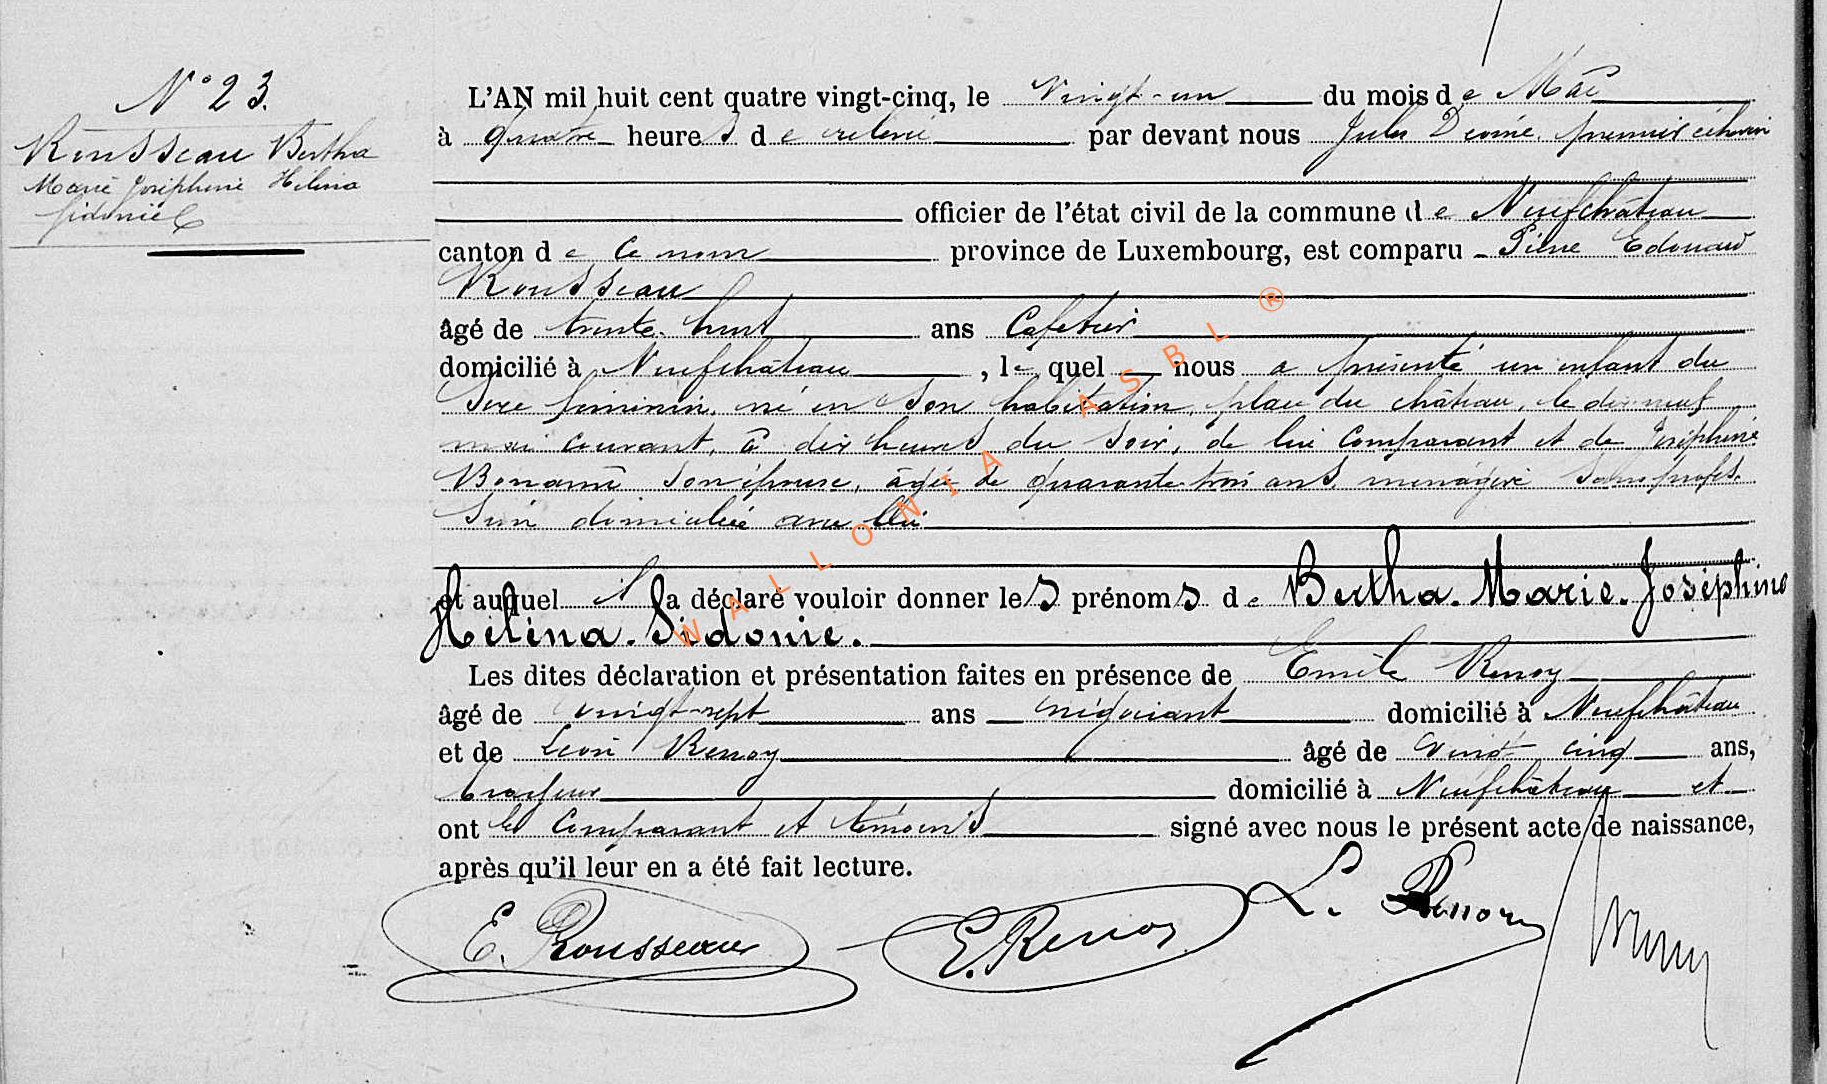 N° 23.
Rousseau Bertha
Marie Joséphine Hélèna
Sidonie
L'AN mil huit cent quatre vingt-cinq, le Vingt-un du mois de Mai
à quatre heures de relevée par devant nous Jules premier échevin
officier de l'état civil de la commune de Neufchâteau
canton de ce nom province de Luxembourg, est comparu Pierre Edouard
Rousseau
âgé de trente-huit ans Cafetier
domicilié à Neufchâteau, lequel nous a présenté un enfant du
Sexe féminin, né en son habitation, place du château, le dix neuf
mai courant, à dix heures du soir, de lui Comparant et de Joséphine
Bonamé son épouse, âgée de quarante-trois ans, ménagère sans profes-
sion domiciliée avec lui
et auquel il a déclaré vouloir donner les prénoms de Bertha. Marie. Joséphine
Hélèna. Sidonie.
Les dites déclaration et présentation faites en présence de Emile Renoy
âgé de vingt-sept ans négociant domicilié à Neufchâteau
et de Léon Renoy âgé de vingt cinq ans,
brasseur domicilié à Neufchâteau et
ont les Comparant et témoins signé avec nous le présent acte de naissance,
après qu'il leur en a été fait lecture.
E. Rousseau E. Renoy L. Renoy
WALLONIA ASBL ®